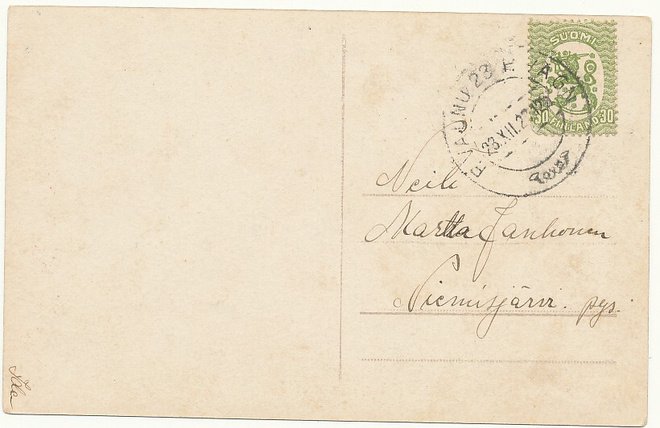 SUOMI
30 FINLAND 30
P. VAUNU 23 P.
23.XII.2
Neiti
Martta Janhonen
Niemisjärvi. pys.